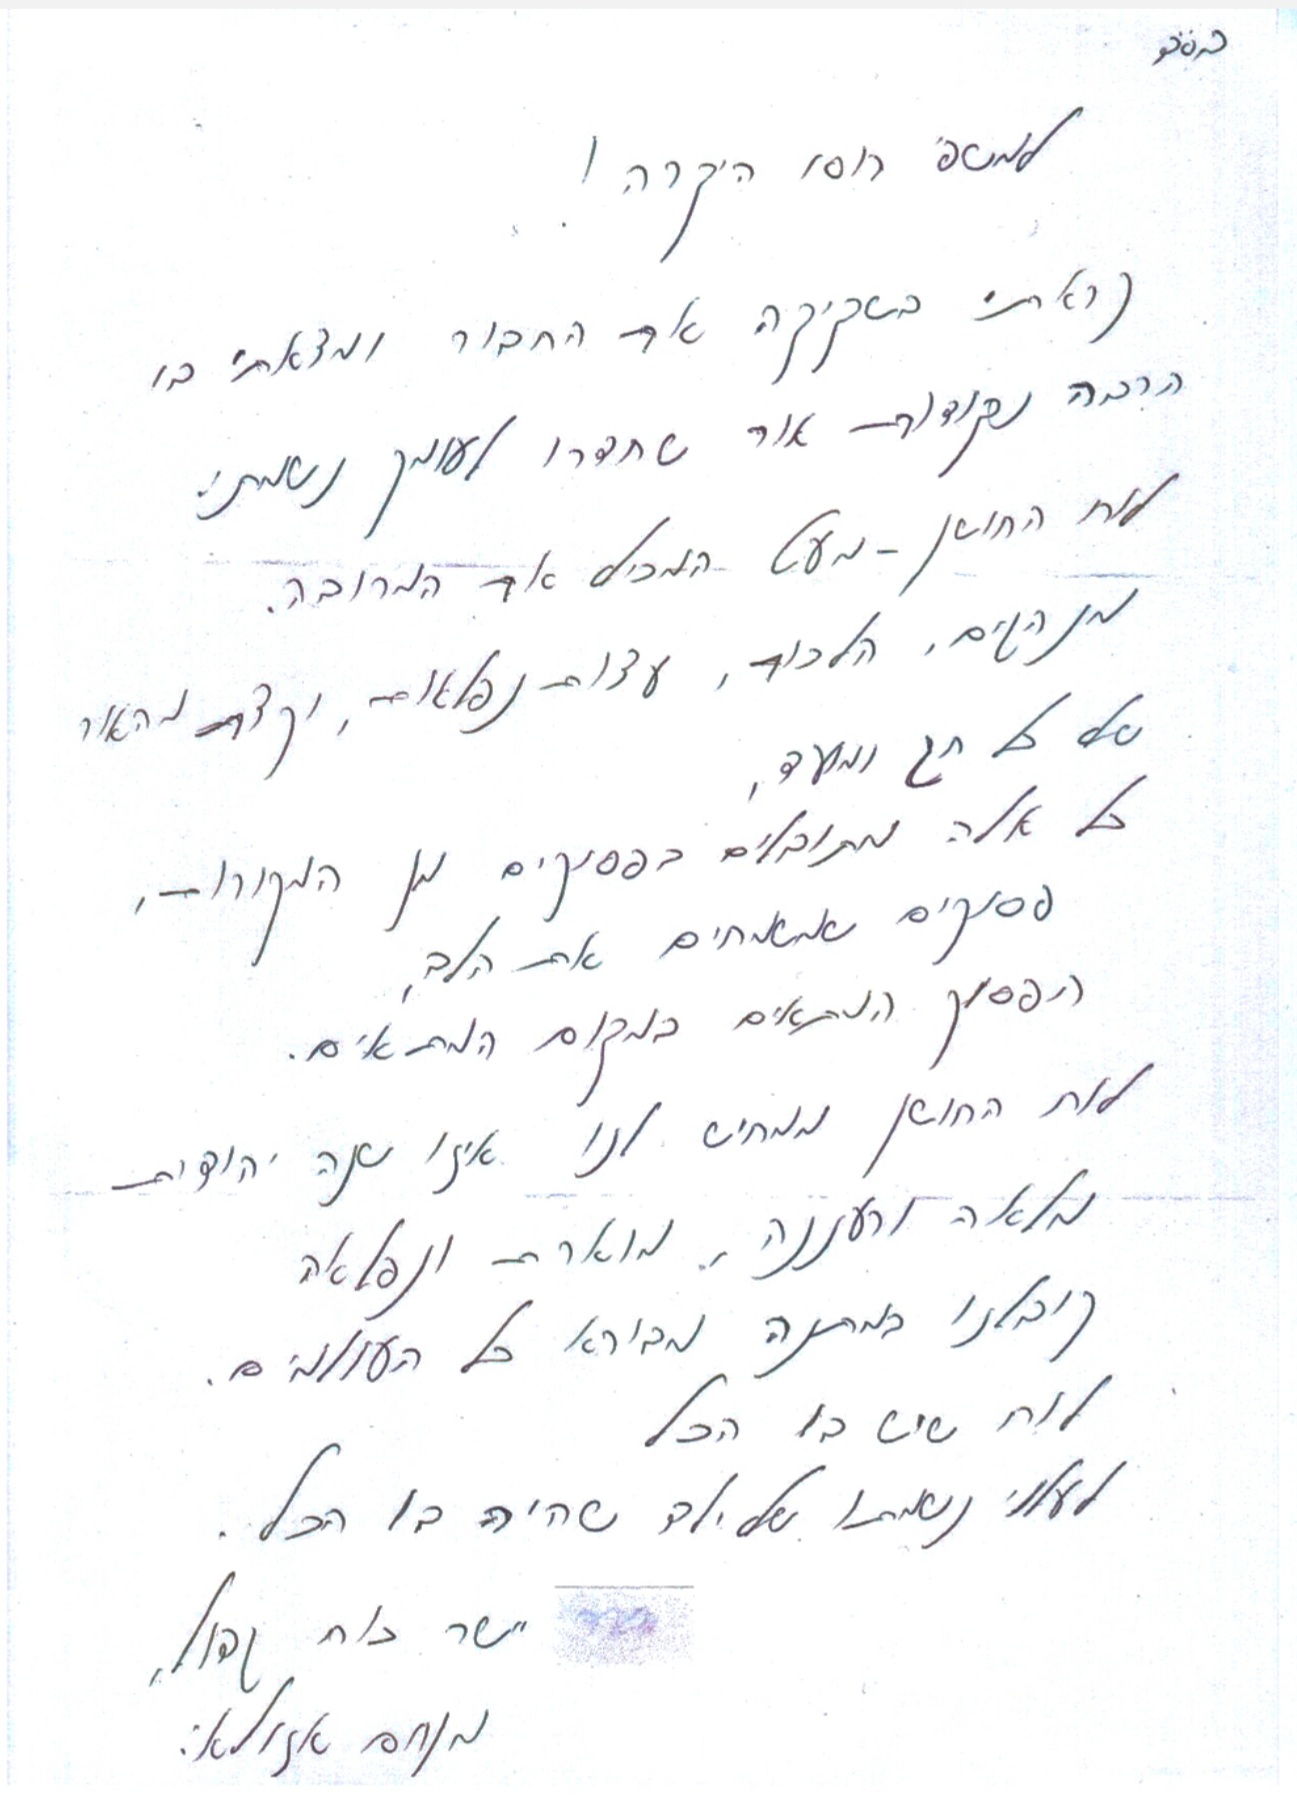 בס"ד
למשפ' רוסו היקרה !
קראתי בשקיקה את החבור ומצאתי בו
הרבה נקודות אור שחדרו לעומק נשמתי.
לוח החושן - מעט המכיל את המרובה.
מנהגים, הלכות, עצות נפלאות, וקצת מהאור
של כל חג ומועד,
כל אלה מתובלים בפסוקים מן המקורות,
פסוקים שמשמחים את הלב,
הפסוק המתאים במקום המתאים.
לוח החושן ממחיש לנו איזו שנה יהודית
מלאה ורעננה, מוארת ונפלאה
קובלנו במתנה מבורא כל העולמים.
לוח שיש בו הכל
לעלוי נשמתו של ילד שהיה בו הכל.
יישר כוח גדול,
מנחם אזולאי.